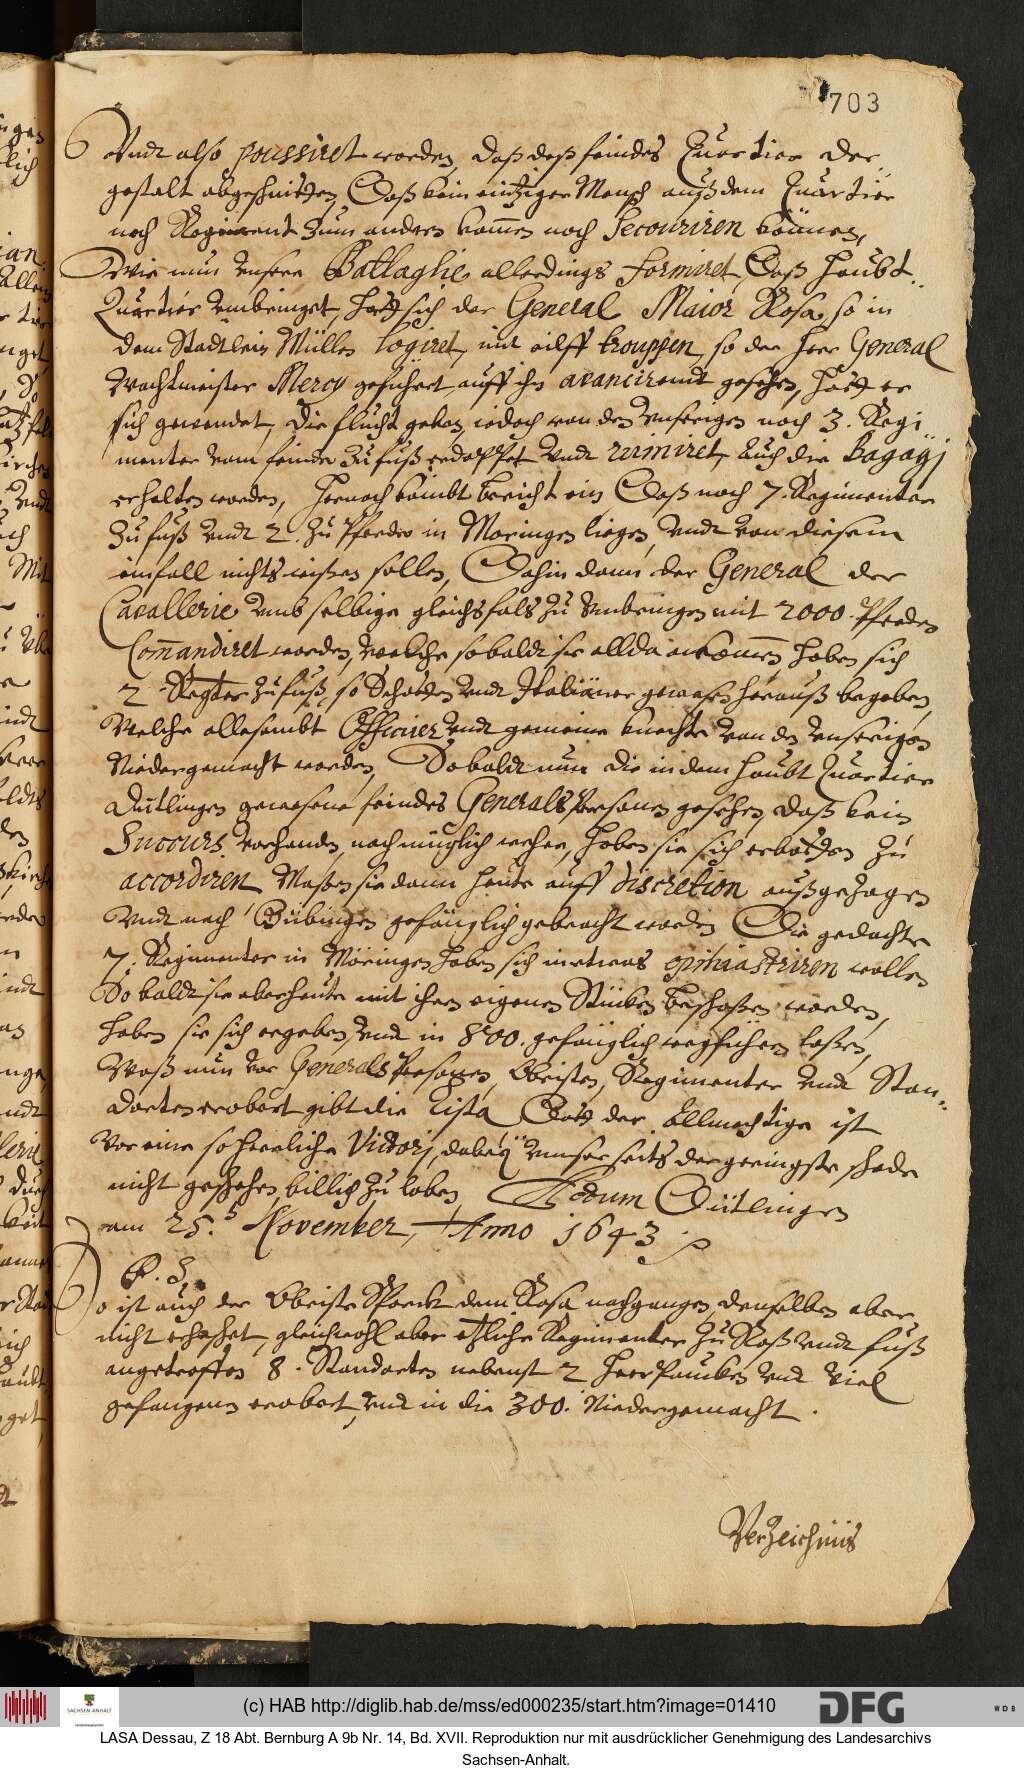 703
Vndt also poussiret worden, daß deß feindes Quartier der
gestalt abgeschnitten, Daß kein eintziger Mensch auß dem Quartier
noch Regiment zum andern kommen noch Secouriren können,
Wie nun Vnsere Battaglie allerdings formiret, Daß Haubt
Quartier Vmbringet, Hatt sich der General Maior Rosa, so in
dem Stadtlein Müllen logiret, mit eilff trouppen, so der Herr General
Wachtmeister Mercy geführet, auff ihn avancirendt gesehen, Hatt er
sich gewendet, die flucht geben, iedoch von den Vnserigen noch 3. Regi
menter vom feinde zu fuß erdappet Vndt ruiniret, Auch die Bagagij
erhalten worden, Hernach kömbt bericht ein, Daß noch 7. Regimenter
Zu fuß Vndt 2. zu Pferde in Möringen liegen, Vndt von diesem
einfall nichts wißen sollen, Dahin dann der General der
Cavallerie Vmb selbige gleichsfals zu Vmbringen mit 2000 Pferden
Commandiret worden, Welche sobaldt sie allda ankommen haben sich
2 Regter zu fuß, so Schotten Vndt Italiäner gewesen herauß begeben,
Welche allesambt Officirer Vndt gemeine knechte von den Vnserigen
Niedergemacht worden, Sobaldt nun die in dem Haubt Quartier
Dutlingen gewesene feindes Generals Personen gesehen, daß kein
Succurs Vorhanden, noch müglich wehre, Haben sie sich erbotten zu
accordiren, Maßen sie dann heute auff discretion außgezogen
Vndt nach Tübingen gefänglich gebracht worden Die gedachte
7. Regimenter in Möringen haben sich in etwas opiniastriren wollen
So baldt sie aber heute mit ihren eigenen Stücken beschoßen worden,
haben sie sich ergeben, Vnd in 800. gefänglich wegführen laßen,
Waß nun vor Generals Personen, Obristen, Regimenter Vndt Stan„
darten erobert gibt die Lista Gott der Allmechtige ist
Vor eine so herrliche Victorj, dabeÿ Vnser seits der geringste schade
nicht geschehen, billich zu loben Actum Dütlingen
am 25. November, Anno 1643
P. S.
So ist auch der Obriste Sporck dem Rosa nachgangen, denselben aber
nicht erhaschet, gleichwohl aber etzliche Regimenter zu Roß Vndt fuß
angetroffen 8. Standarten nebenst 2 Heer Paucken Vnd Viel
gefangene erobert, Vnd in die 300. Niedergemacht.
Verzeichnüs
(c) HAB http://diglib.hab.de/mss/ed000235/start.htm?image=01410
SACHSEN-ANHALT
DFG
WDB
LASA Dessau, Z 18 Abt. Bernburg A 9b Nr. 14, Bd. XVII. Reproduktion nur mit ausdrücklicher Genehmigung des Landesarchivs
Sachsen-Anhalt.